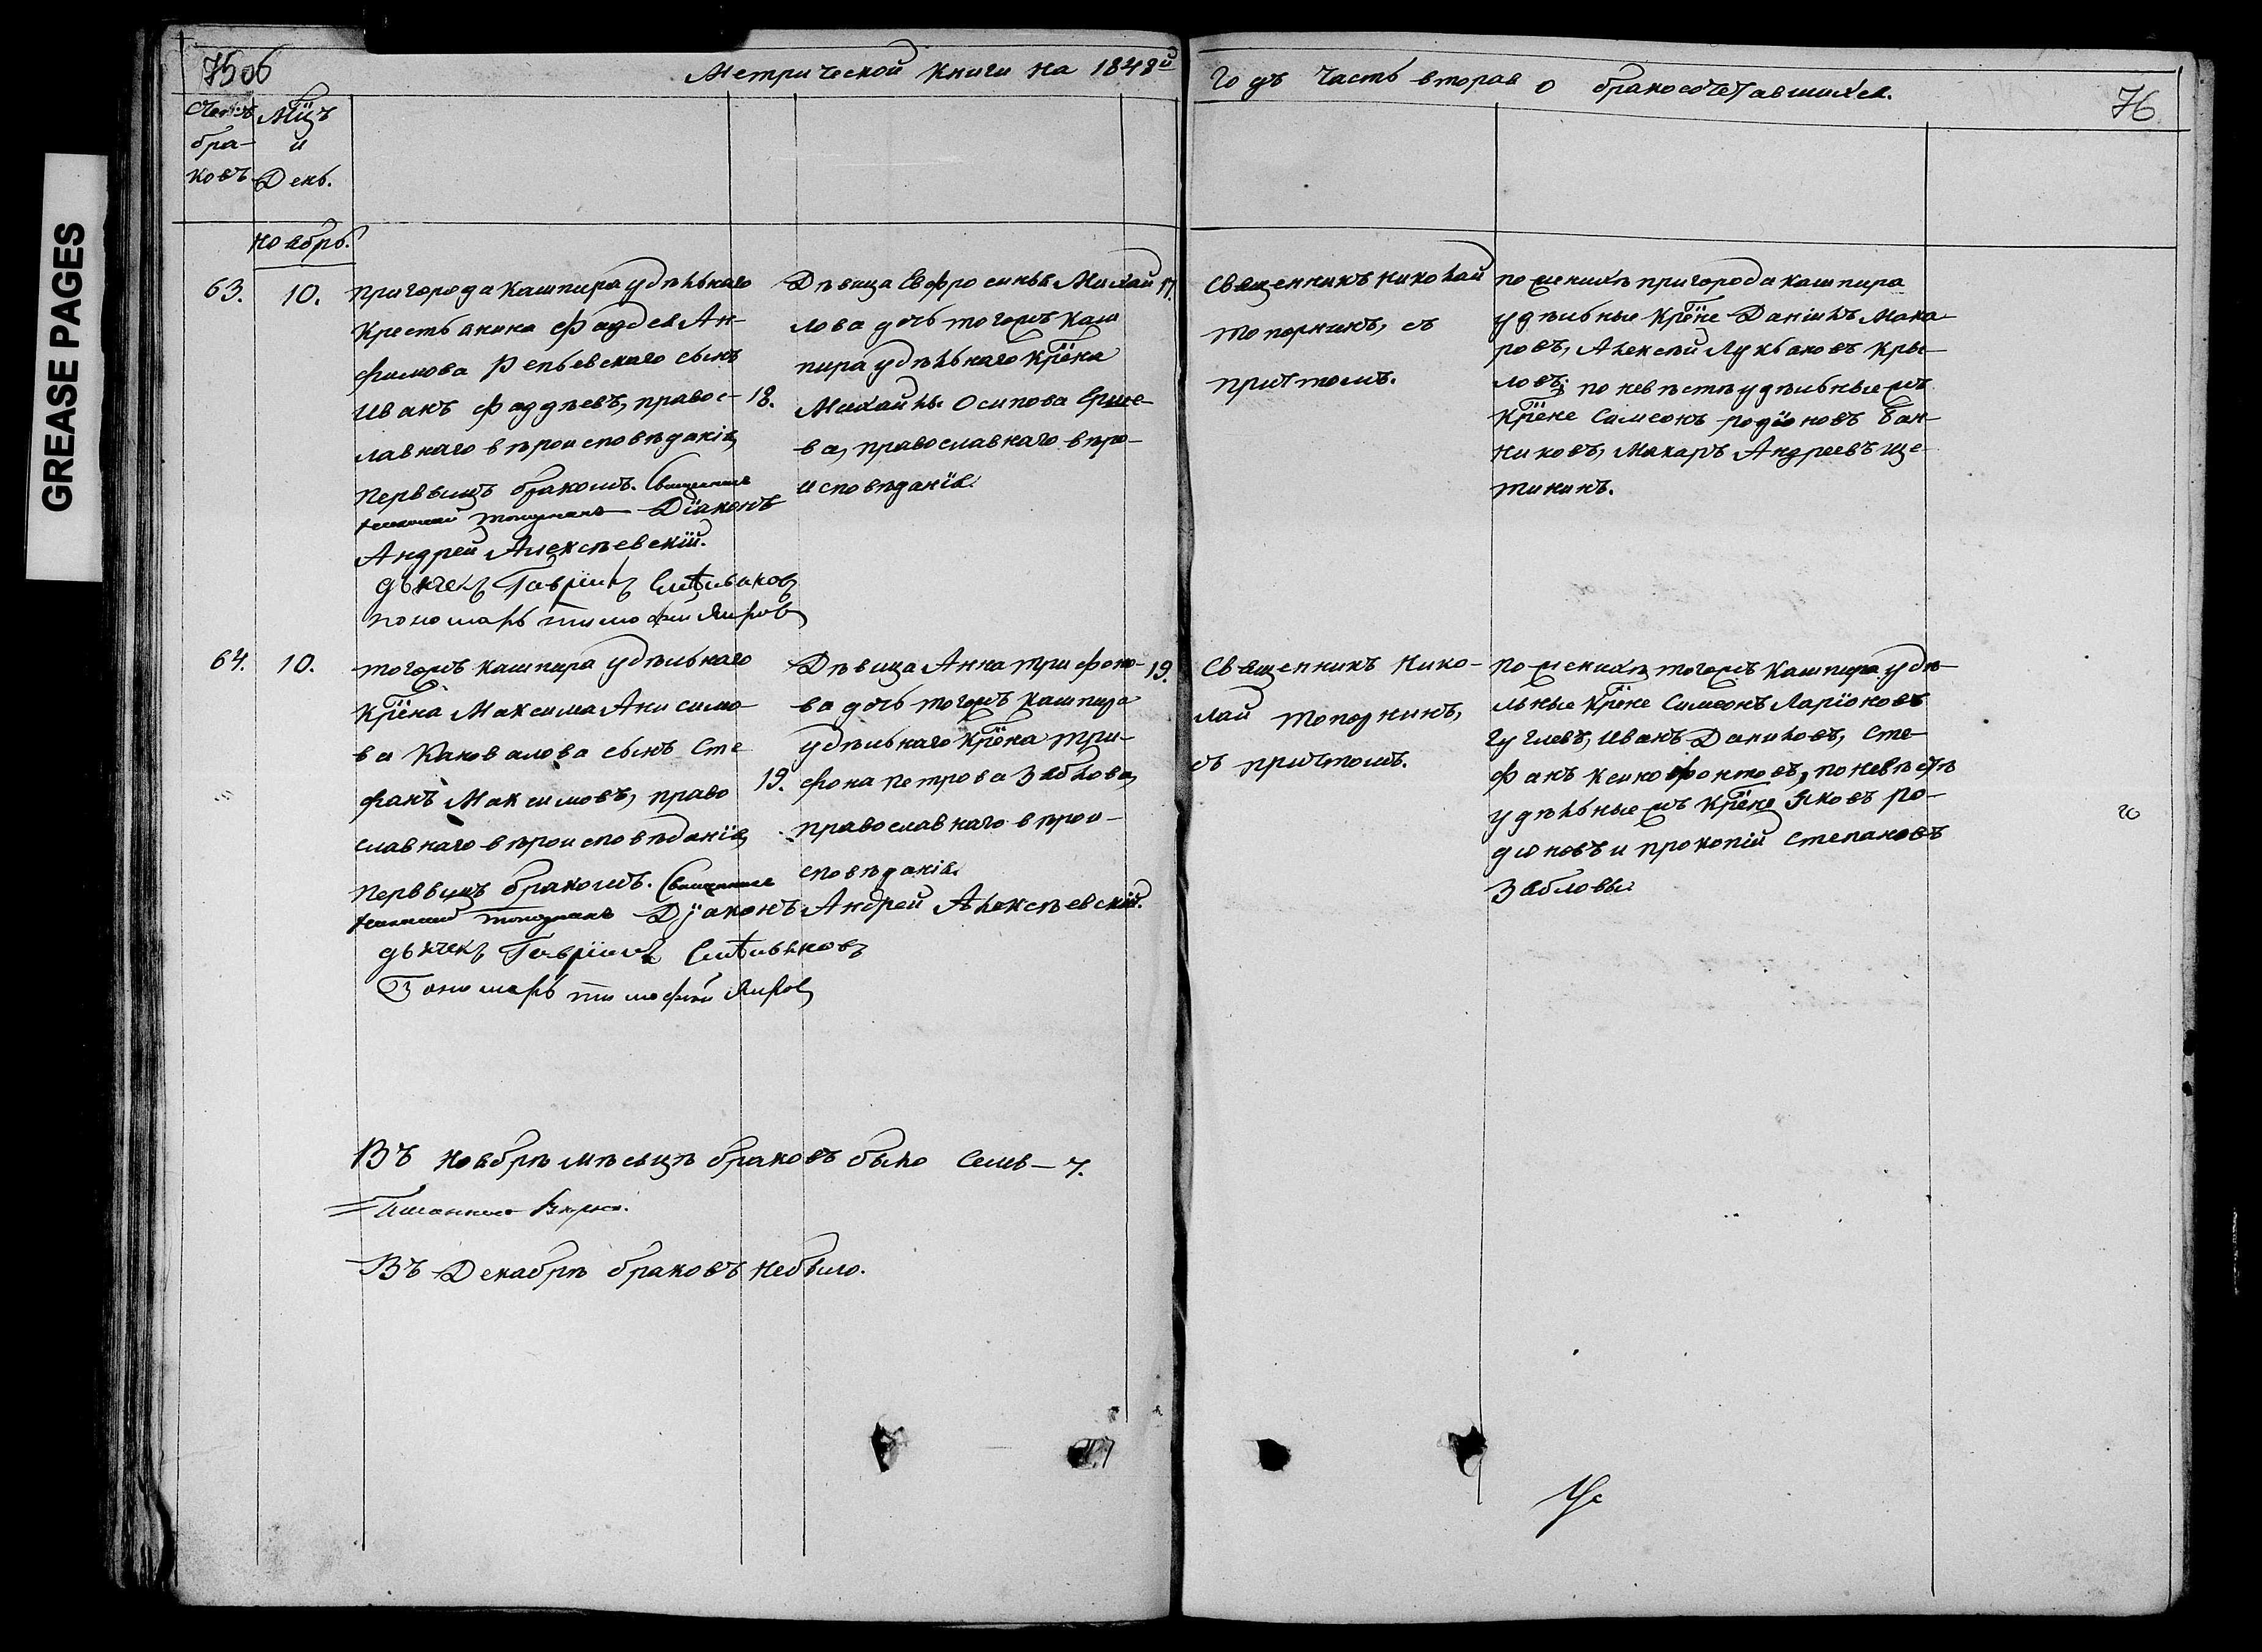 75об
Метрической книги на 1848й
годъ часть вторая о бракосочетавшихся.
76
Счетъ
бра-
ковъ
Мцъ
и
День.
Ноябрь.
63.
10.
Пригорода Кашпира удѣльнаго
крестьянина Фаддея Ан-
фимова Репьевскаго сынъ
Иванъ Фаддѣевъ, правос-
лавнаго вѣроисповѣданія,
первымъ бракомъ. Священникъ
Николай Топорнинъ Дїаконъ
Андрей Алексѣевскїй.
дьячекъ Гаврїилъ
пономарь Тимофей
18.
Дѣвица Евфросинья Михай
лова дочь тогожъ Каш
пира удѣльнаго крёна
Михайлы Осипова
ва, православнаго вѣро-
исповѣданія.
17.
Священникъ Николай
Топорнинъ, съ
причтомъ.
по женихѣ пригорода Кашпира
удѣльные крёне Данїилъ Мака
ровъ, Алексѣй Лукьановъ Кры-
ловъ; по невѣстѣ удѣльные жъ
крёне Симеонъ Родїоновъ Бан-
никовъ, Макаръ Андреевъ Ще-
тининъ.
64.
10.
Тогожъ Кашпира удѣльнаго
крёна Максима Анисимо-
ва Кановалова сынъ Сте
фанъ Максимовъ, право
славнаго вѣроисповѣданїя,
первымъ бракомъ. Священникъ
Николай Топорнинъ Дїаконъ Андрей Алексѣевскїй.
дьячекъ Гаврїилъ
Пономарь Тимофей
19.
Дѣвица Анна Трифоно-
ва дочь тогожъ Кашпира
удѣльнаго крёна Три-
фона Петрова Зяблова,
православнаго вѣрои-
сповѣданія.
19.
Священникъ Нико-
лай Топорнинъ,
съ причтомъ.
по женихѣ тогожъ Кашпира удѣ
льные крёне Симеонъ Ларїоновъ
Гуглевъ, Иванъ Даниловъ, Сте-
фанъ Ксинофонтовъ, по невѣстѣ
удѣльные жъ крёне Яковъ Ро-
дїоновъ и Прокопїй Степановъ
Зябловы.
Въ Ноябрѣ мѣсяцѣ браковъ было семь — 7.
Въ Декабрѣ браковъ небыло.